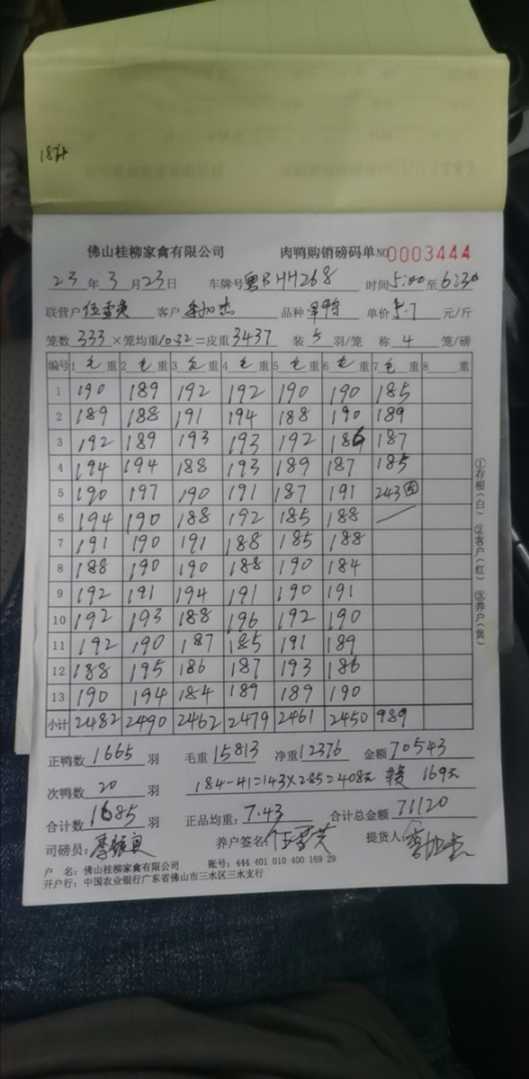 佛山桂柳家禽有限公司 肉鸭购销磅码单 NO 0003444
23 年 3 月 23 日 车牌号 粤BHH268 时间 5:00 至 6:30
联营户 客户 品种 单价 5.7 元/斤
笼数 333 ×笼均重 10.32 =皮重 3437 装 5 羽/笼 称 4 笼/磅
编号 1 毛 重 2 毛 重 3 毛 重 4 毛 重 5 毛 重 6 毛 重 7 毛 重 8 重
1 190 189 192 192 190 190 185
2 189 188 191 194 188 190 189
3 192 189 193 193 192 186 187
4 194 194 188 193 189 187 185
5 190 197 190 191 187 191 243
6 194 190 188 192 185 188
7 191 190 191 188 185 188
8 188 190 190 188 190 184
9 192 191 194 191 190 191
10 192 193 188 196 192 190
11 192 190 187 185 191 189
12 188 195 186 187 193 186
13 190 194 184 189 189 190
小计 2482 2490 2462 2479 2461 2450 989
①存根(白) ②客户(红) ③养户(黄)
正鸭数 1665 羽 毛重 15813 净重 12376 金额 70543
次鸭数 20 羽 184-41=143×2.85=408元 169元
合计数 1685 羽 正品均重: 7.43 合计总金额 71120
司磅员: 养户签名: 提货人:
户 名: 佛山桂柳家禽有限公司 账号: 444 401 010 400 169 29
开户行: 中国农业银行广东省佛山市三水区三水支行